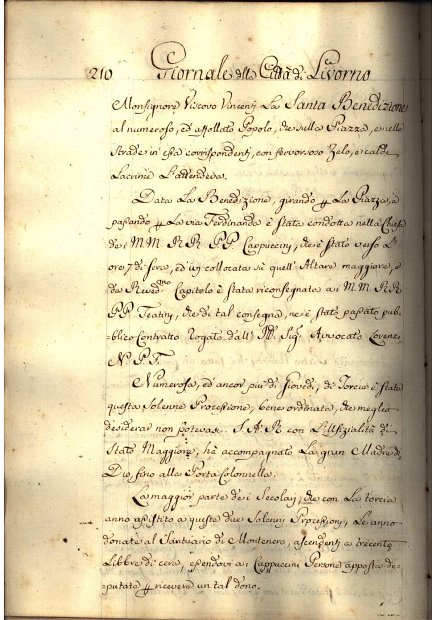 210 Giornale della Città di Livorno
Monsignore Viscovo Vincenti La Santa Benedizione
al numeroso, ed affollato Popolo, che sulla Piazza, e nelle
Strade in essa corrispondenti, con fervoroso Zelo, e calde
Lacrime L'attendeva.
Data La Benedizione, girando p La Piazza, e
passando p La via Ferdinanda è stata condotta nella Chiesa
de i M.M. R.R. PP. Cappuccini, che è stato verso L'
ore 7 di sera, ed ivi collocata sù quell'Altare maggiore, e
da Capitolo è stata riconsegnata a i M.M. R.R.
PP. Teatini, che di tal consegna, ne è stato passato pub-
blico Contratto Rogato dall' Sig. Avvocato
N. P. F.
Numerosa, ed ancor più di Giovedì, di Torcie è stata
questa Solenne Processione, bene ordinata, che meglio
desiderar non potevasi. S.A.R. con L'Uffizialità di
Stato Maggiore, hà accompagnato La gran Madre di
Dio, fino alla Porta Colonnella.
La maggior parte de i Secolari, che con La torcia
anno assistito a queste due Solenni Processioni, Le anno
donate al Santuario di Montenero, ascendenti a trecento
Libbre di cera, essendovi a i Cappuccini Persone apposta de-
putate p ricevere un tal dono.